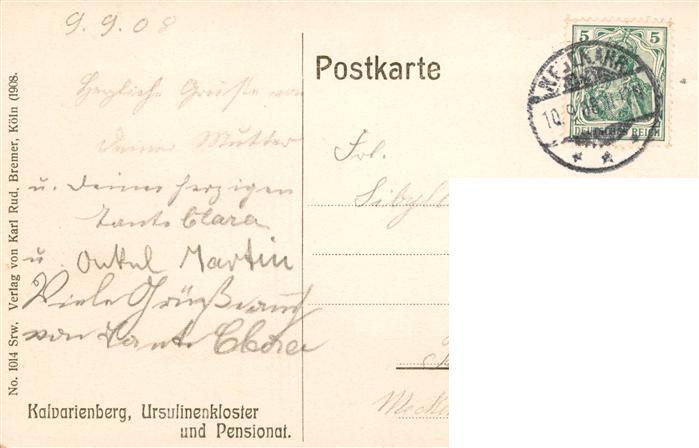 9.9.08
Herzliche Grüsse von
deiner Mutter
u. deiner herzigen
Tante Clara
u. Onkel Martin
Viele Grüße auch
von Tante Clara
Kalvarienberg, Ursulinenkloster
und Pensionat.
No. 1014 Srw. Verlag von Karl Rud. Bremer, Köln (1908.
Postkarte
5 5
DEUTSCHES REICH
10.9.08
Frl.